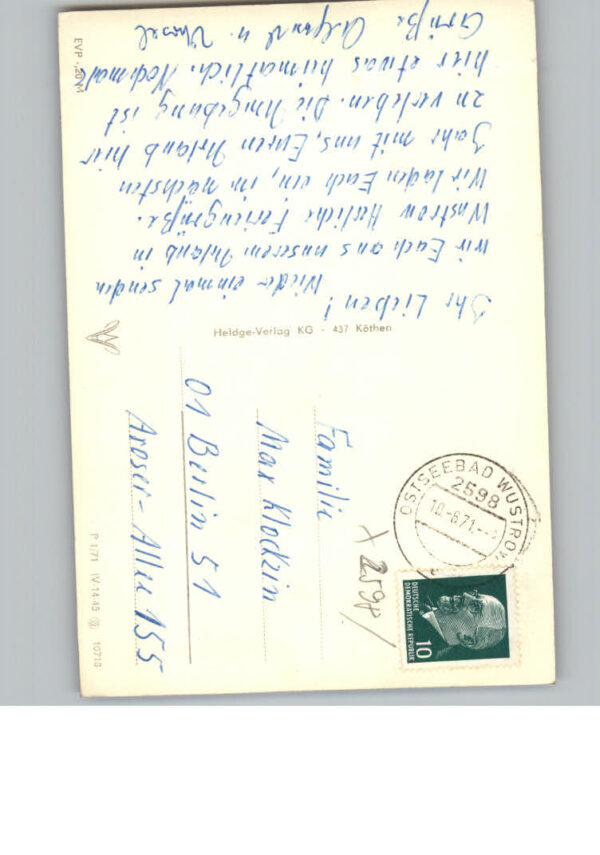 Ihr Lieben!
Wieder einmal senden
wir Euch aus unserem Urlaub in
Wustrow Herzliche Feriengrüße.
Wir laden Euch ein, im nächsten
Jahr mit uns, Euren Urlaub hier
zu verleben. Die Umgebung ist
hier etwas heimatlich. Nochmals
Grüße u.
EVP
Heldge-Verlag KG - 437 Köthen
Familie
Max Klockzin
01 Berlin 51
Aroser-Allee 155
OSTSEEBAD WUSTROW
2598
10.-6.71.
+ 2598/
DEUTSCHE
DEMOKRATISCHE REPUBLIK
10
P 1/71 IV-14-45 10718